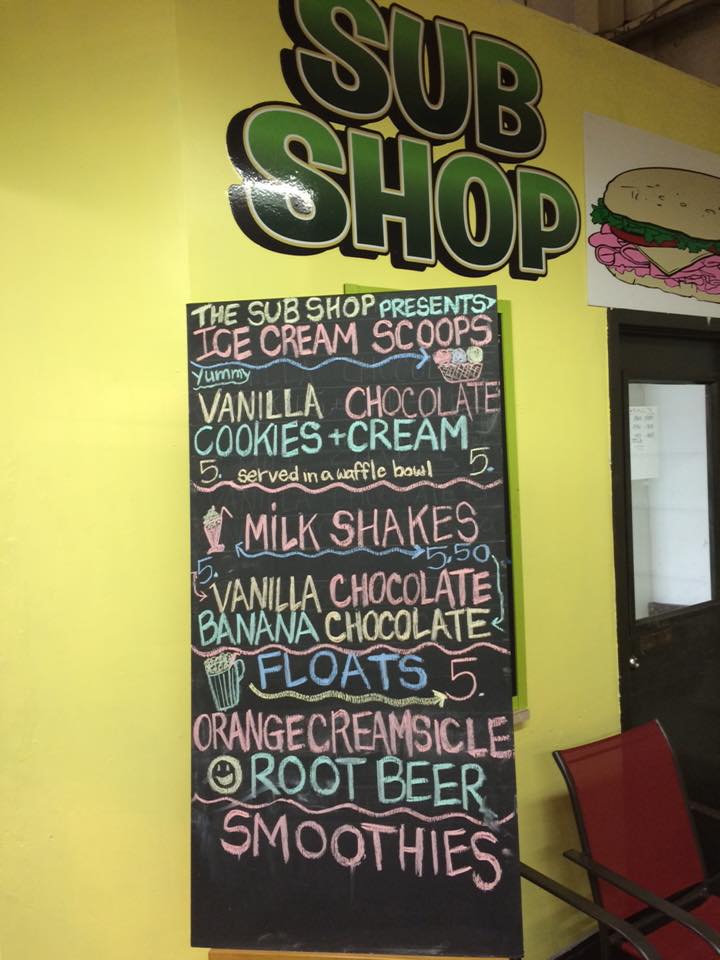 SUB
SHOP
THE SUB SHOP PRESENTS
ICE CREAM SCOOPS
Yummy
VANILLA CHOCOLATE
COOKIES + CREAM
5. served in a waffle bowl 5.
MILK SHAKES
5. 5.50
VANILLA CHOCOLATE
BANANA CHOCOLATE
FLOATS 5.
ORANGE CREAMSICLE
ROOT BEER
SMOOTHIES